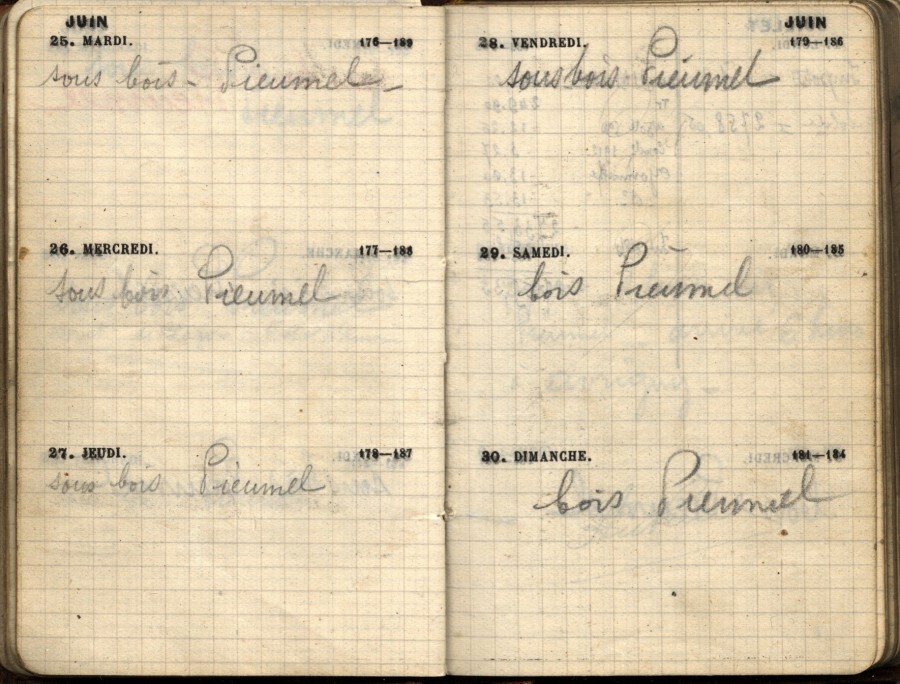 JUIN
25. MARDI. 176—189
sous bois - Pieumel -
26. MERCREDI. 177—188
sous bois Pieumel
27. JEUDI. 178—187
sous bois Pieumel
JUIN
28. VENDREDI. 179—186
sous bois Pieumel
29. SAMEDI. 180—185
bois Pieumel
30. DIMANCHE. 181—184
bois Pieumel